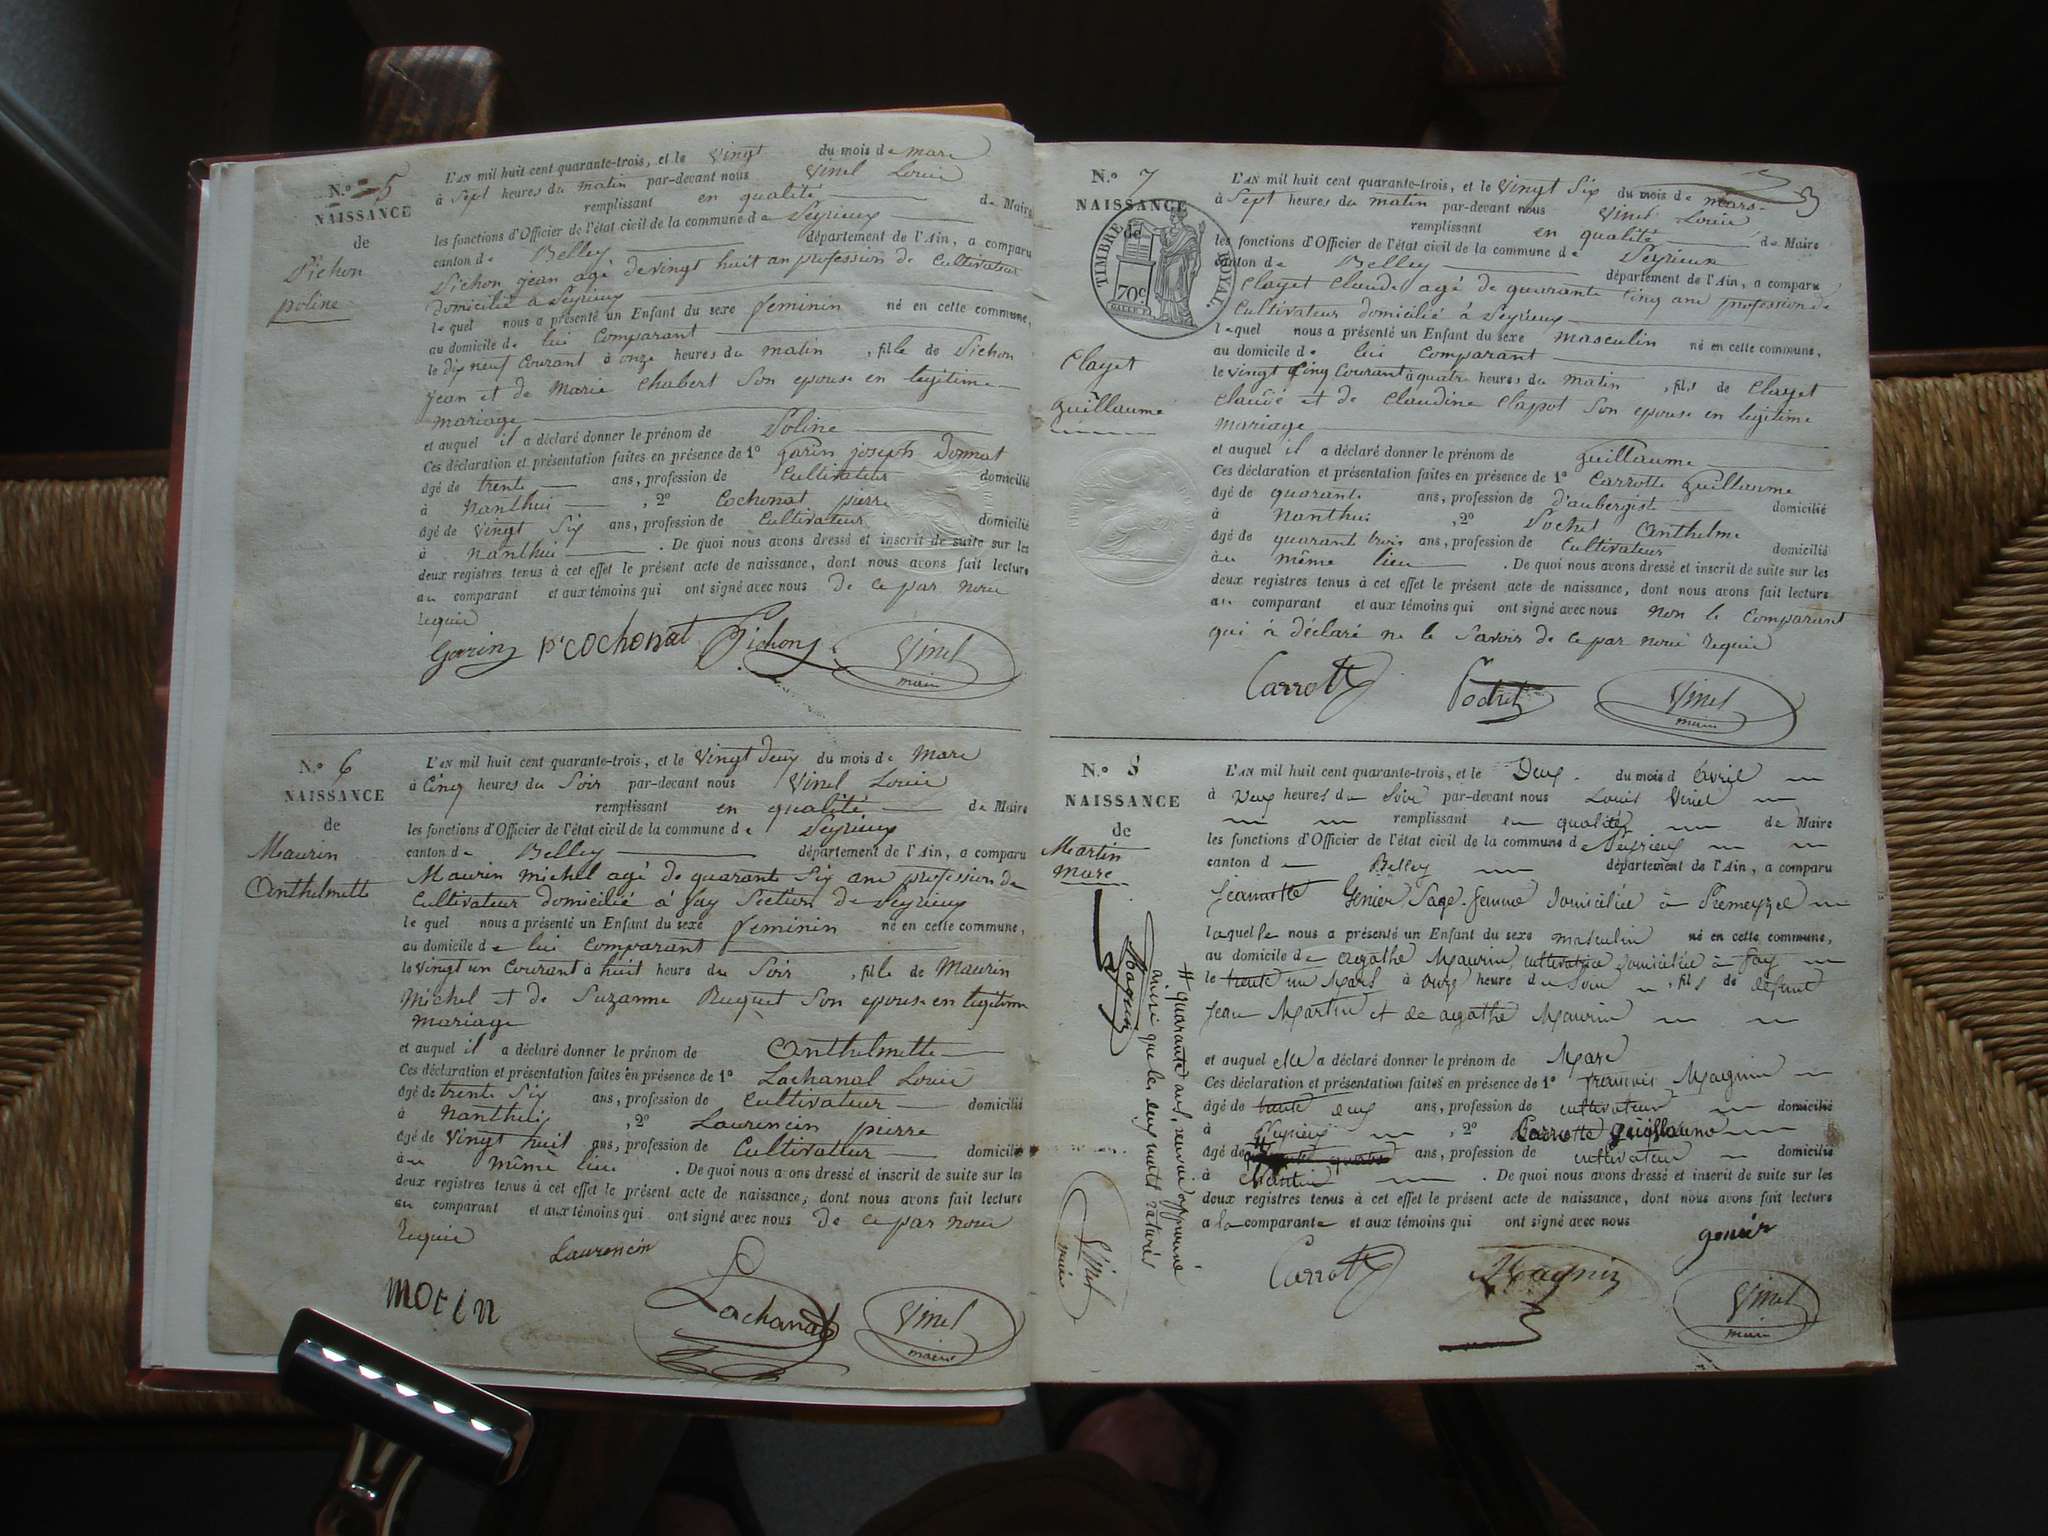 N.º 5
NAISSANCE
de
Pichon
poline
L'AN mil huit cent quarante-trois, et le vingt du mois de mars
à Sept heures du matin par-devant nous Vinel Louis
remplissant en qualité de Maire
les fonctions d'Officier de l'état civil de la commune de Peyrieux
canton de Belley département de l'Ain, a comparu
Pichon jean agé de vingt huit an profession de Cultivateur
domicilié a Peyrieux
le quel nous a présenté un Enfant du sexe feminin né en cette commune,
au domicile de lui Comparant
le dix neuf Courant à onze heures du matin, fille de Pichon
jean et de Marie Chabert Son epouse en legitime
mariage
et auquel il a déclaré donner le prénom de Poline
Ces déclaration et présentation faites en présence de 1º Garin joseph Donnat
âgé de trente ans, profession de Cultivateur domicilié
à Nanthui, 2º Cochonat pierre
âgé de vingt Six ans, profession de Cultivateur domicilié
à nanthui. De quoi nous avons dressé et inscrit de suite sur les
deux registres tenus à cet effet le présent acte de naissance, dont nous avons fait lecture
au comparant et aux témoins qui ont signé avec nous de ce par nous
requis
Garin P. Cochonat Pichon Vinel
maire
N.º 6
NAISSANCE
de
Maurin
Anthelmette
L'AN mil huit cent quarante-trois, et le Vingt deux du mois de Mars
à Cinq heures du Soir par-devant nous Vinel Louis
remplissant en qualité de Maire
les fonctions d'Officier de l'état civil de la commune de Peyrieux
canton de Belley département de l'Ain, a comparu
Maurin michel agé de quarante Six ans profession de
Cultivateur domicilié à fay Section de Peyrieux
le quel nous a présenté un Enfant du sexe feminin né en cette commune,
au domicile de lui comparant
le vingt un Courant à huit heure du Soir, fille de Maurin
Michel et de Suzanne Buquet Son epouse en legitime
mariage
et auquel il a déclaré donner le prénom de Anthelmette
Ces déclaration et présentation faites en présence de 1º Lachanal Louis
âgé de trente Six ans, profession de Cultivateur domicilié
à Nanthuy, 2º Laurencin pierre
âgé de Vingt huit ans, profession de Cultivateur domicilié
au même lieu. De quoi nous avons dressé et inscrit de suite sur les
deux registres tenus à cet effet le présent acte de naissance, dont nous avons fait lecture
au comparant et aux témoins qui ont signé avec nous de ce par nous
requis
Laurencin
morin Lachanal Vinel
maire
N.º 7
NAISSANCE
de
TIMBRE ROYAL.
70c
Clayet
Guillaume
L'AN mil huit cent quarante-trois, et le Vingt Six du mois de mars
à Sept heures du matin par-devant nous Vinel Louis
remplissant en qualité de Maire
les fonctions d'Officier de l'état civil de la commune de Peyrieux
canton de Belley département de l'Ain, a comparu
Clayet Claude agé de quarante Cinq ans profession de
Cultivateur domicilié à Peyrieux
le quel nous a présenté un Enfant du sexe masculin né en cette commune,
au domicile de lui comparant
le vingt Cinq Courant à quatre heures du matin, fils de Clayet
Claude et de Claudine Clappot Son epouse en legitime
mariage
et auquel il a déclaré donner le prénom de Guillaume
Ces déclaration et présentation faites en présence de 1º Carrotte Guillaume
âgé de quarante ans, profession de d'aubergiste domicilié
à Nanthui, 2º Pochet Anthelme
âgé de quarante trois ans, profession de Cultivateur domicilié
au même lieu. De quoi nous avons dressé et inscrit de suite sur les
deux registres tenus à cet effet le présent acte de naissance, dont nous avons fait lecture
au comparant et aux témoins qui ont signé avec nous non le comparant
qui à déclaré ne le Savoir de ce par nous requis
Carrotte Pochet Vinel
maire
N.º 8
NAISSANCE
de
Martin
Marc
L'AN mil huit cent quarante-trois, et le Deux du mois d'avril
à Deux heures du Soir par-devant nous Louis Vinel
remplissant en qualité de Maire
les fonctions d'Officier de l'état civil de la commune de Peyrieux
canton de Belley département de l'Ain, a comparu
Jeannette Genier Sage-femme domiciliée à Premeyzel
laquelle nous a présenté un Enfant du sexe masculin né en cette commune,
au domicile de agathe Maurin cultivatrice domiciliée à fay
le trente un Mars à onze heure du Soir, fils de défunt
Jean Martin et de agathe Maurin
et auquel elle a déclaré donner le prénom de Marc
Ces déclaration et présentation faites en présence de 1º francois Magnin
âgé de trente deux ans, profession de cultivateur domicilié
à Peyrieux, 2º Carrotte Guillaume
âgé de # ans, profession de cultivateur domicilié
à Nantui. De quoi nous avons dressé et inscrit de suite sur les
deux registres tenus à cet effet le présent acte de naissance, dont nous avons fait lecture
a la comparante et aux témoins qui ont signé avec nous
genier
Carrotte Magnin Vinel
maire
# quarante ans, renvoi approuvé
ainsi que les deux mots raturés
Magnin
Vinel
maire